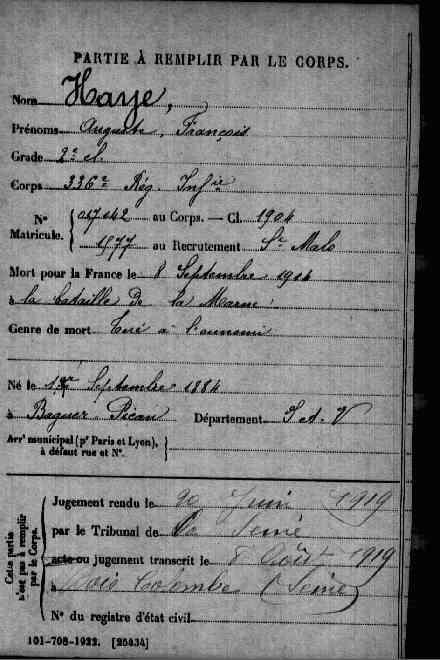 PARTIE À REMPLIR PAR LE CORPS.
Nom Haye,
Prénoms Auguste, François
Grade 2e cl
Corps 336e Rég. Infie
N° Matricule. { 017042 au Corps. — Cl. 1904
1577 au Recrutement St Malo
Mort pour la France le 8 Septembre 1914
à la bataille de la Marne
Genre de mort Tué à l'ennemi
Né le Septembre 1884
à Baguer Pican Département I et V
Arrt municipal (pr Paris et Lyon), à défaut rue et N°. }
Cette partie n'est pas à remplir par le Corps.
Jugement rendu le 20 Juin 1919
par le Tribunal de la Seine
acte ou jugement transcrit le 8 Août 1919
à Bois Colombes (Seine)
N° du registre d'état civil
101-708-1922. [26434]